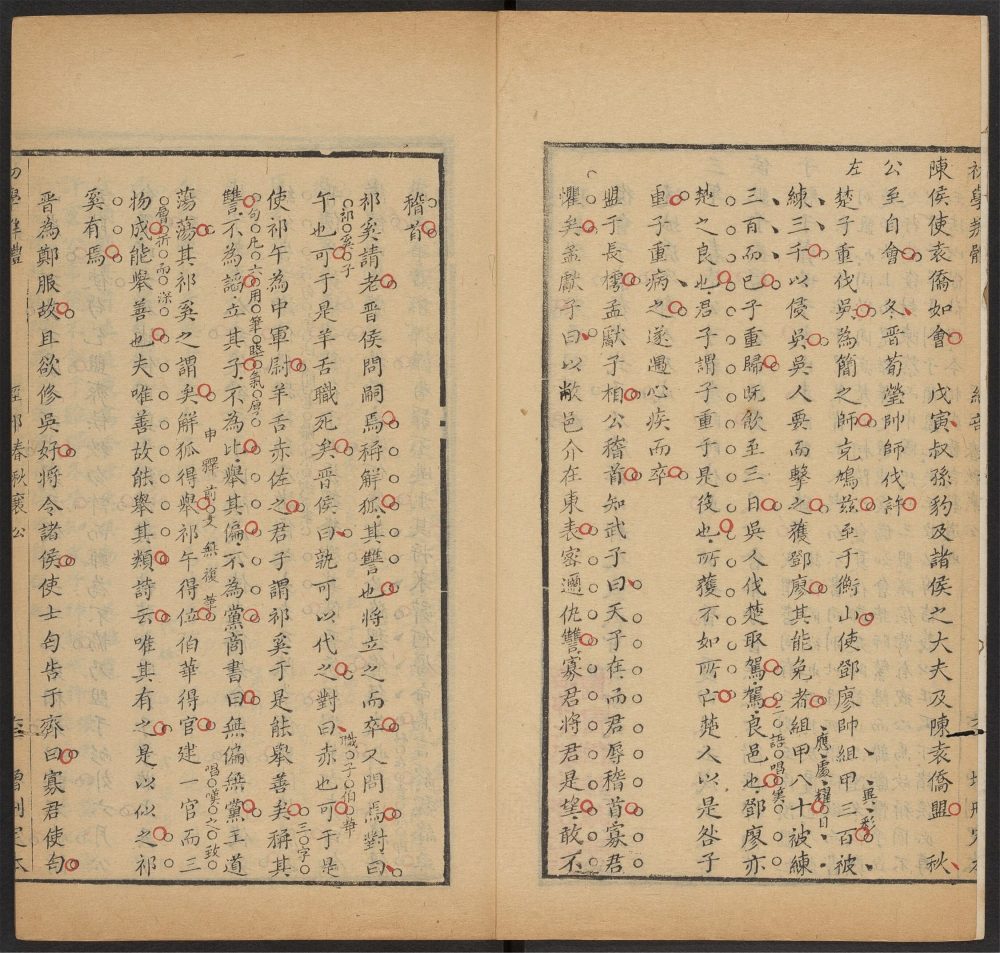 陳侯使袁僑如會　戊寅叔孫豹及諸侯之大夫及陳袁僑盟　秋
公至自會　冬晉荀罃帥師伐許
左　楚子重伐吳為簡之師克鳩兹至于衡山使鄧廖帥組甲三百被
練三千以侵吳吳人要而擊之獲鄧廖其能免者組甲八十被練
三百而已子重歸旣飮至三日吳人伐楚取駕駕良邑也鄧廖亦
楚之良也君子謂子重于是役也所獲不如所亡楚人以是咎子
重子重病之遂遇心疾而卒
盟于長樗孟獻子相公稽首知武子曰天子在而君辱稽首寡君
懼矣孟獻子曰以敝邑介在東表密邇仇讐寡君將君是望敢不
稽首
祁奚請老晉侯問嗣焉稱解狐其讐也將立之而卒又問焉對曰
祁奚子
午也可于是羊舌職死矣晉侯曰孰可以代之對曰赤也可于是
職子伯華
使祁午為中軍尉羊舌赤佐之君子謂祁奚于是能舉善矣稱其
三字
讐不為謟立其子不為比舉其偏不為黨商書曰無偏無黨王道
蕩蕩其祁奚之謂矣解狐得舉祁午得位伯華得官建一官而三
申釋前文無復筆
物成能舉善也夫唯善故能舉其類詩云唯其有之是以似之祁
奚有焉
晉為鄭服故且欲修吳好將令諸侯使士匄告于齊曰寡君使匄